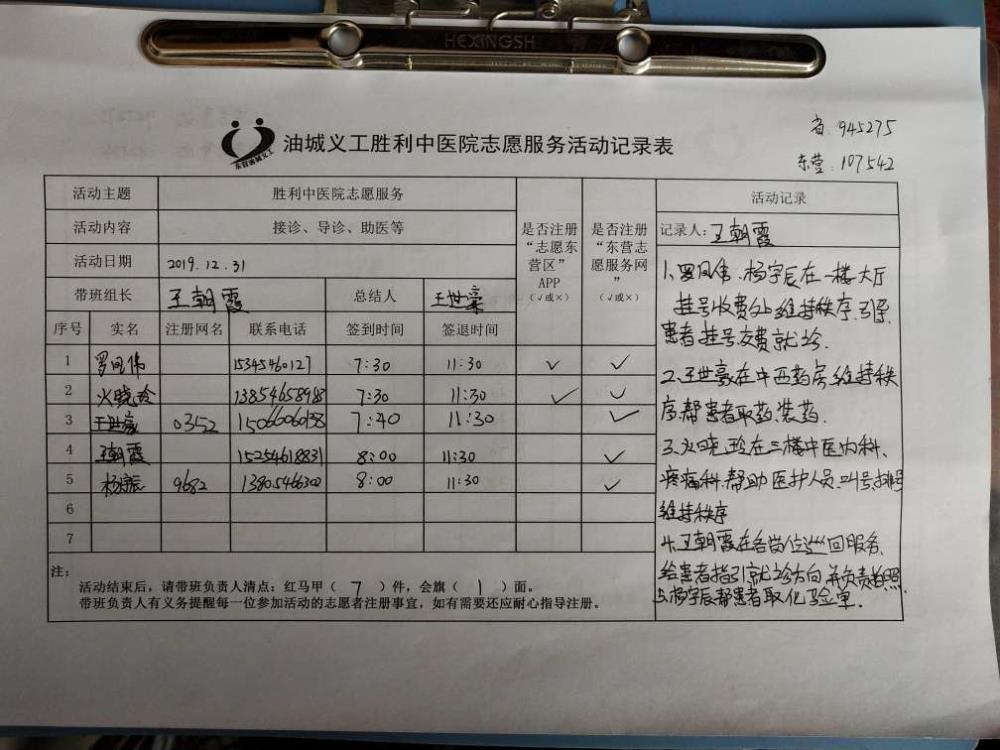 HEXINGSH
省：945275
东营：107542
东营油城义工
油城义工胜利中医院志愿服务活动记录表
活动主题 胜利中医院志愿服务
活动内容 接诊、导诊、助医等
活动日期 2019.12.31
带班组长 王朝霞 总结人 王世豪
是否注册“志愿东营区”APP（√或×）
是否注册“东营志愿服务网”（√或×）
序号 实名 注册网名 联系电话 签到时间 签退时间
1 罗凤伟 15345460127 7:30 11:30 √ √
2 火晓玲 13854658998 7:30 11:30 √ √
3 王世豪 0352 15066060158 7:40 11:30 √
4 王朝霞 15254618831 8:00 11:30 √
5 杨宇辰 9682 13805466300 8:00 11:30 √
6
7
注：
活动结束后，请带班负责人清点：红马甲（ 7 ）件，会旗（ 1 ）面。
带班负责人有义务提醒每一位参加活动的志愿者注册事宜，如有需要还应耐心指导注册。
活动记录
记录人：王朝霞
1、罗凤伟、杨宇辰在一楼大厅
挂号收费处维持秩序，引导
患者挂号交费就诊．
2、王世豪在中西药房维持秩
序，帮患者取药、装药．
3、火晓玲在三楼中医内科、
疼痛科，帮助医护人员叫号，排号
维持秩序
4、王朝霞在各岗位巡回服务，
给患者指引就诊方向并负责拍照
与杨宇辰帮患者取化验单．